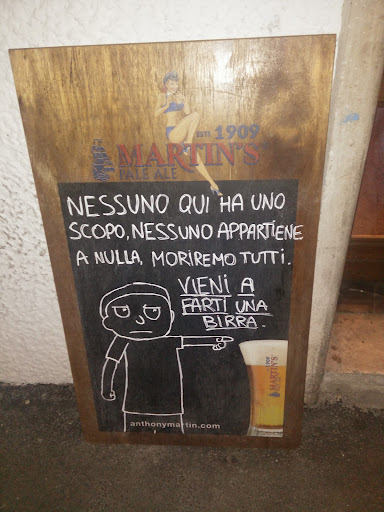 ESTD 1909
MARTIN'S
PALE ALE
NESSUNO QUI HA UNO
SCOPO, NESSUNO APPARTIENE
A NULLA, MORIREMO TUTTI.
VIENI A
FARTI UNA
BIRRA.
MARTIN'S
anthonymartin.com